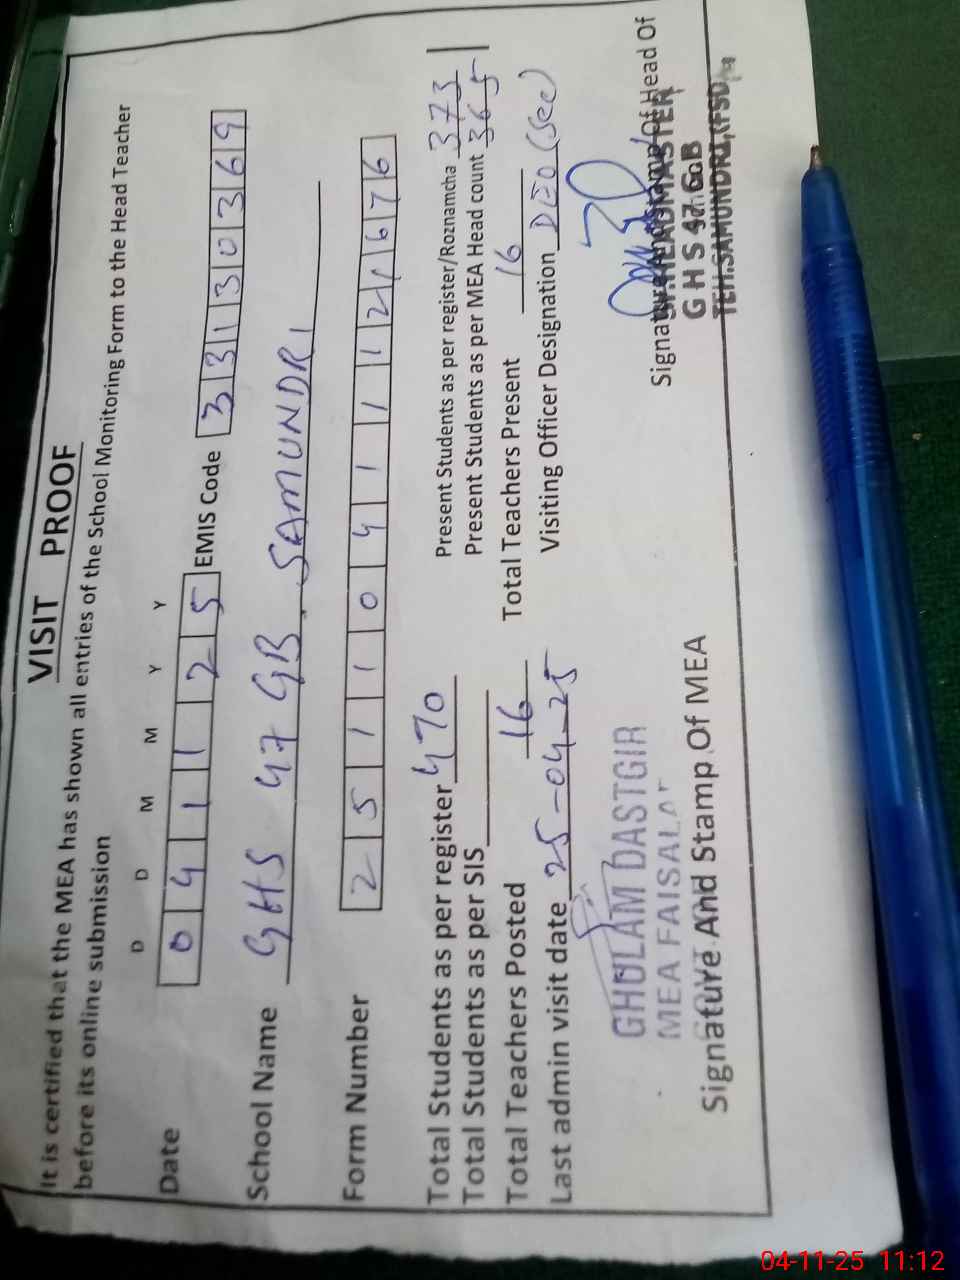 VISIT PROOF
It is certified that the MEA has shown all entries of the School Monitoring Form to the Head Teacher
before its online submission
D D M M Y Y
Date 0 4 1 1 2 5 EMIS Code 3 3 1 3 0 3 6 9
School Name GHS 47 GB SAMUNDRI
Form Number 2 5 1 1 0 4 1 1 1 2 1 6 7 6
Total Students as per register 470 Present Students as per register/Roznamcha 373
Total Students as per SIS Present Students as per MEA Head count 365
Total Teachers Posted 16 Total Teachers Present 16
Last admin visit date 25-04-25 Visiting Officer Designation DEO (See)
GHULAM DASTGIR
MEA FAISALA
Signature And Stamp Of MEA
Signature And Stamp Of Head Of
HEADMASTER
G H S 47 GB
TEH.SAMUNDRI,(FSD)
04-11-25 11:12